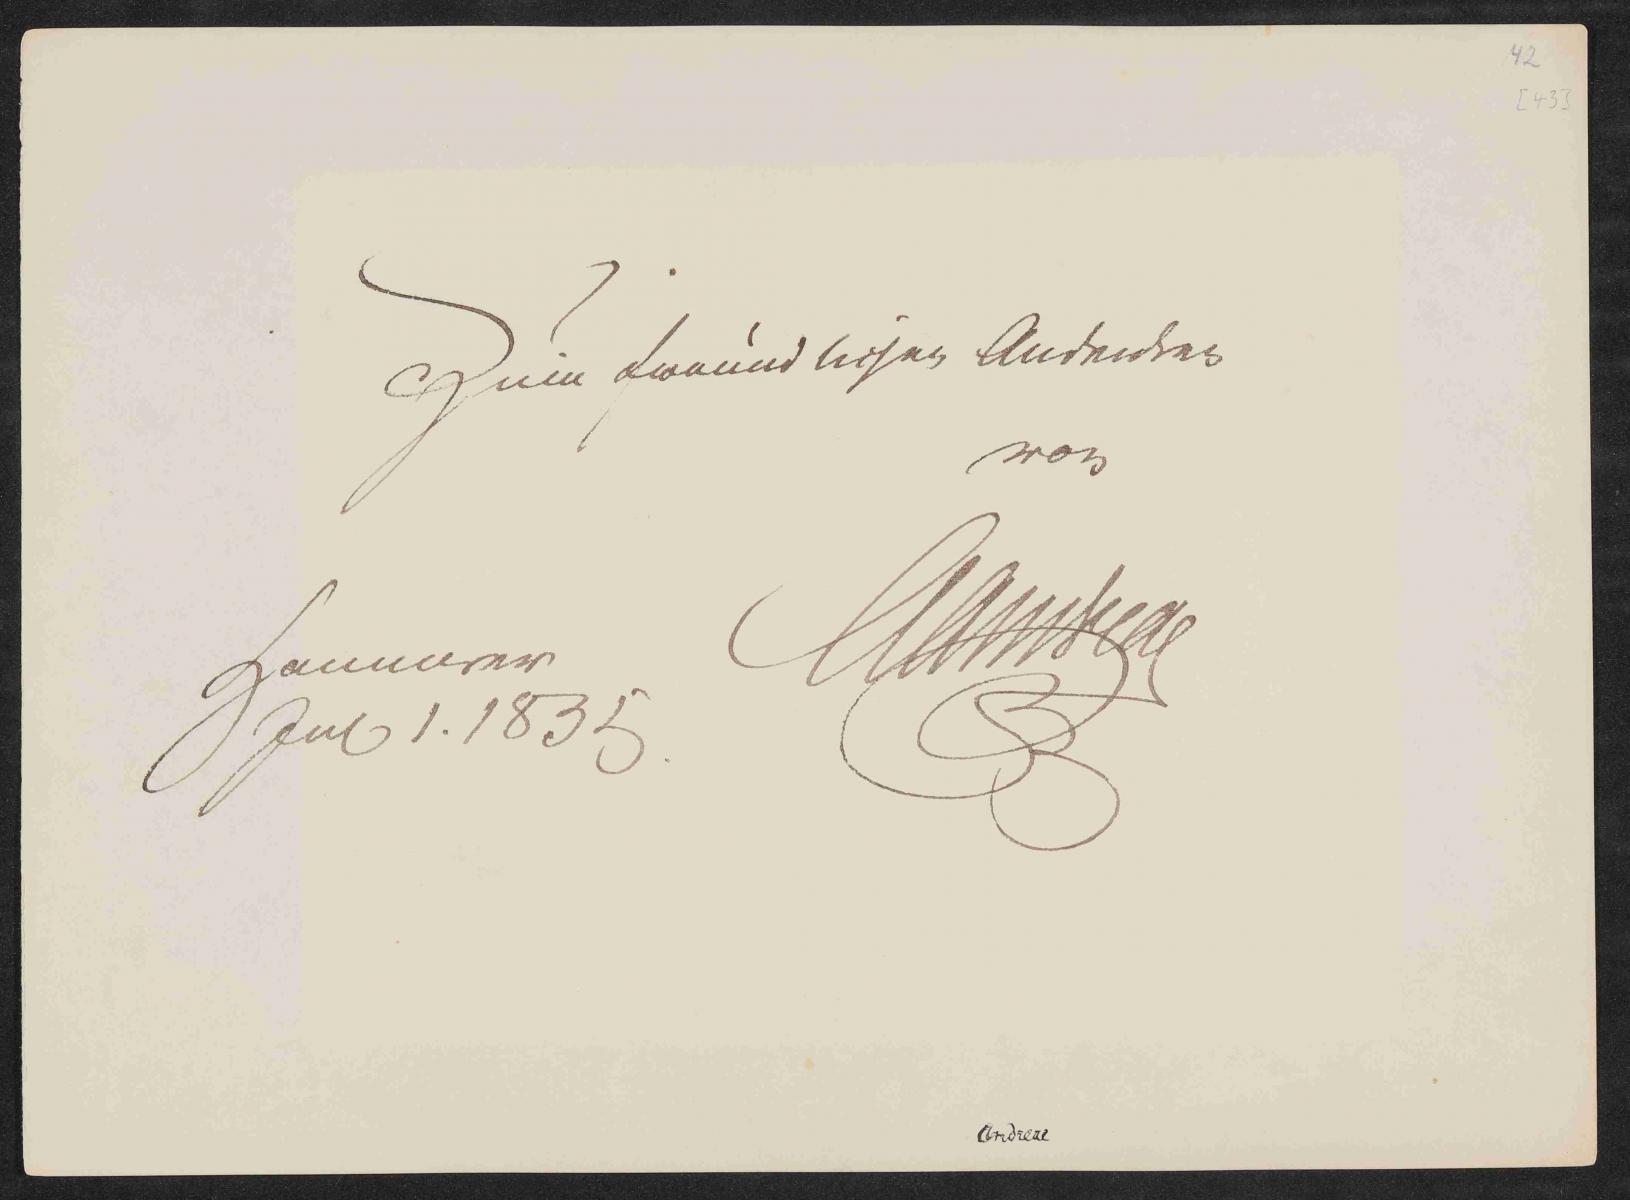 42
[43]
Zum freundlichen Andenken
von
Hannover
Jul 1. 1835.
Andreae